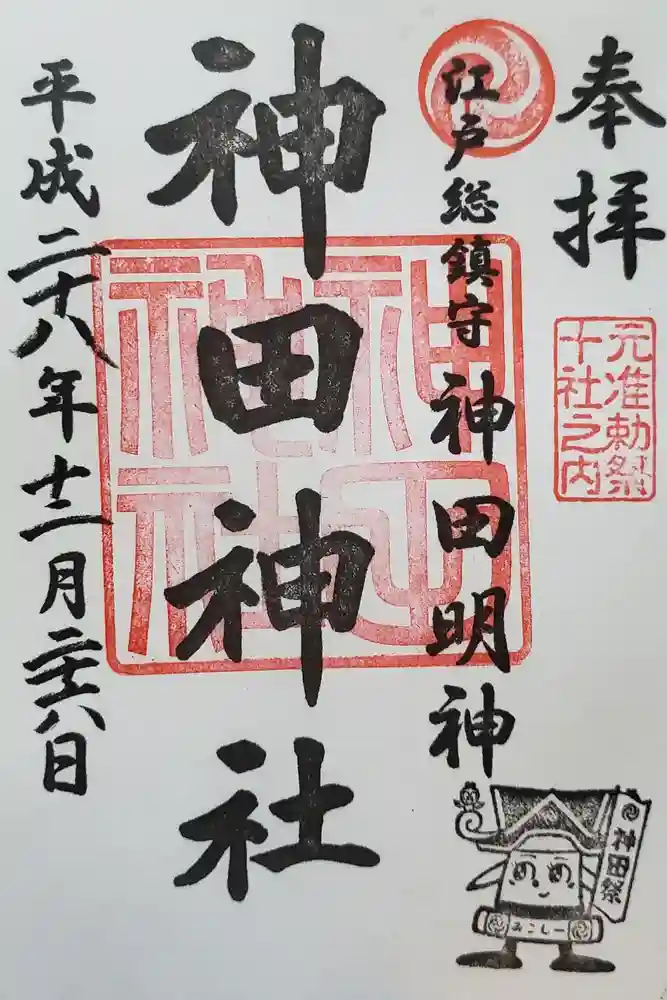 奉拝
元准勅祭
十社之内
江戸総鎮守神田明神
神田神社
神田神社
平成二十八年十二月二十八日
神田祭
みこしー